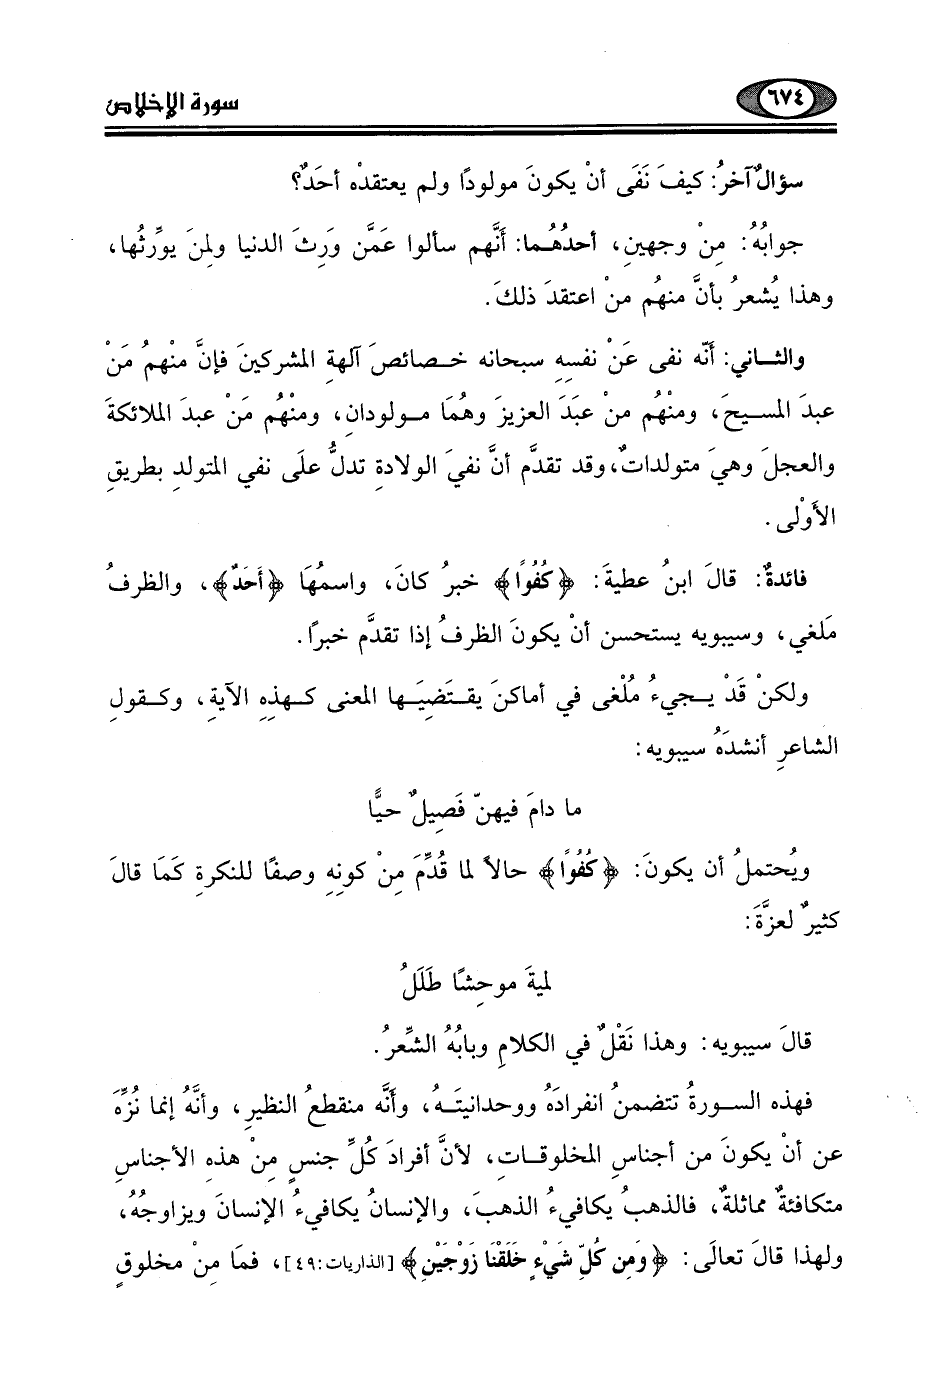 ٦٧٤ سورة الإخلاص
سؤالٌ آخرُ: كيفَ نَفَى أنْ يكونَ مولودًا ولم يعتقدْه أحَدٌ؟
جوابُهُ: مِنْ وجهينِ، أحدُهُما: أنَّهم سألوا عَمَّن وَرِثَ الدنيا ولمنَ يورِّثُها،
وهذا يُشعرُ بأنَّ منهُم منْ اعتقدَ ذلكَ.
والثـاني: أنّه نفى عَنْ نفسِهِ سبحانه خـصائصَ آلهةِ المشركينَ فإنَّ منْهمُ مَنْ
عبدَ المسـيحَ، ومنْهُم منْ عبَدَ العزيزَ وهُمَا مـولودانِ، ومنْهُم مَنْ عبدَ الملائكةَ
والعجلَ وهيَ متولداتٌ، وقد تقدَّم أنَّ نفيَ الولادةِ تدلُّ علَى نفي المتولدِ بطريقِ
الأَوْلى.
فائدةٌ: قالَ ابنُ عطيةَ: ﴿كُفُوًا﴾ خبرُ كانَ، واسمُهَا ﴿أَحَدٌ﴾، والظرفُ
مَلغي، وسيبويه يستحسن أنْ يكونَ الظرفُ إذا تقدَّم خبرًا.
ولكنْ قَدْ يـجيءُ مُلْغى في أماكنَ يقـتَضِيَـها المعنى كـهذِهِ الآيةِ، وكـقولِ
الشاعرِ أنشدَهُ سيبويه:
ما دامَ فيهنّ فَصِيلٌ حيًّا
ويُحتملُ أن يكونَ: ﴿كُفُوًا﴾ حالاً لما قُدِّمَ مِنْ كونِهِ وصفًا للنكرةِ كَمَا قالَ
كثيرٌ لعزَّةَ:
لميةَ موحِشًا طَلَلُ
قالَ سيبويه: وهذا نَقْلٌ في الكلامِ وبابُهُ الشِّعرُ.
فهذه السـورةُ تتضمنُ انفرادَهُ ووحدانيتَـهُ، وأنَّه منقطعُ النظيرِ، وأنَّهُ إنما نُزِّهَ
عن أنْ يكونَ من أجناسِ المخلوقـاتِ، لأنَّ أفرادَ كُلِّ جنسٍ مِنْ هذهِ الأجناسِ
متكافئةٌ مماثلةٌ، فالذهبُ يكافيءُ الذهبَ، والإنسانُ يكافيءُ الإنسانَ ويزاوجُهُ،
ولهذا قالَ تعالَى: ﴿وَمِن كُلِّ شَيْءٍ خَلَقْنَا زَوْجَيْنِ﴾ [الذاريات:٤٩]، فمَا مِنْ مخلوقٍ